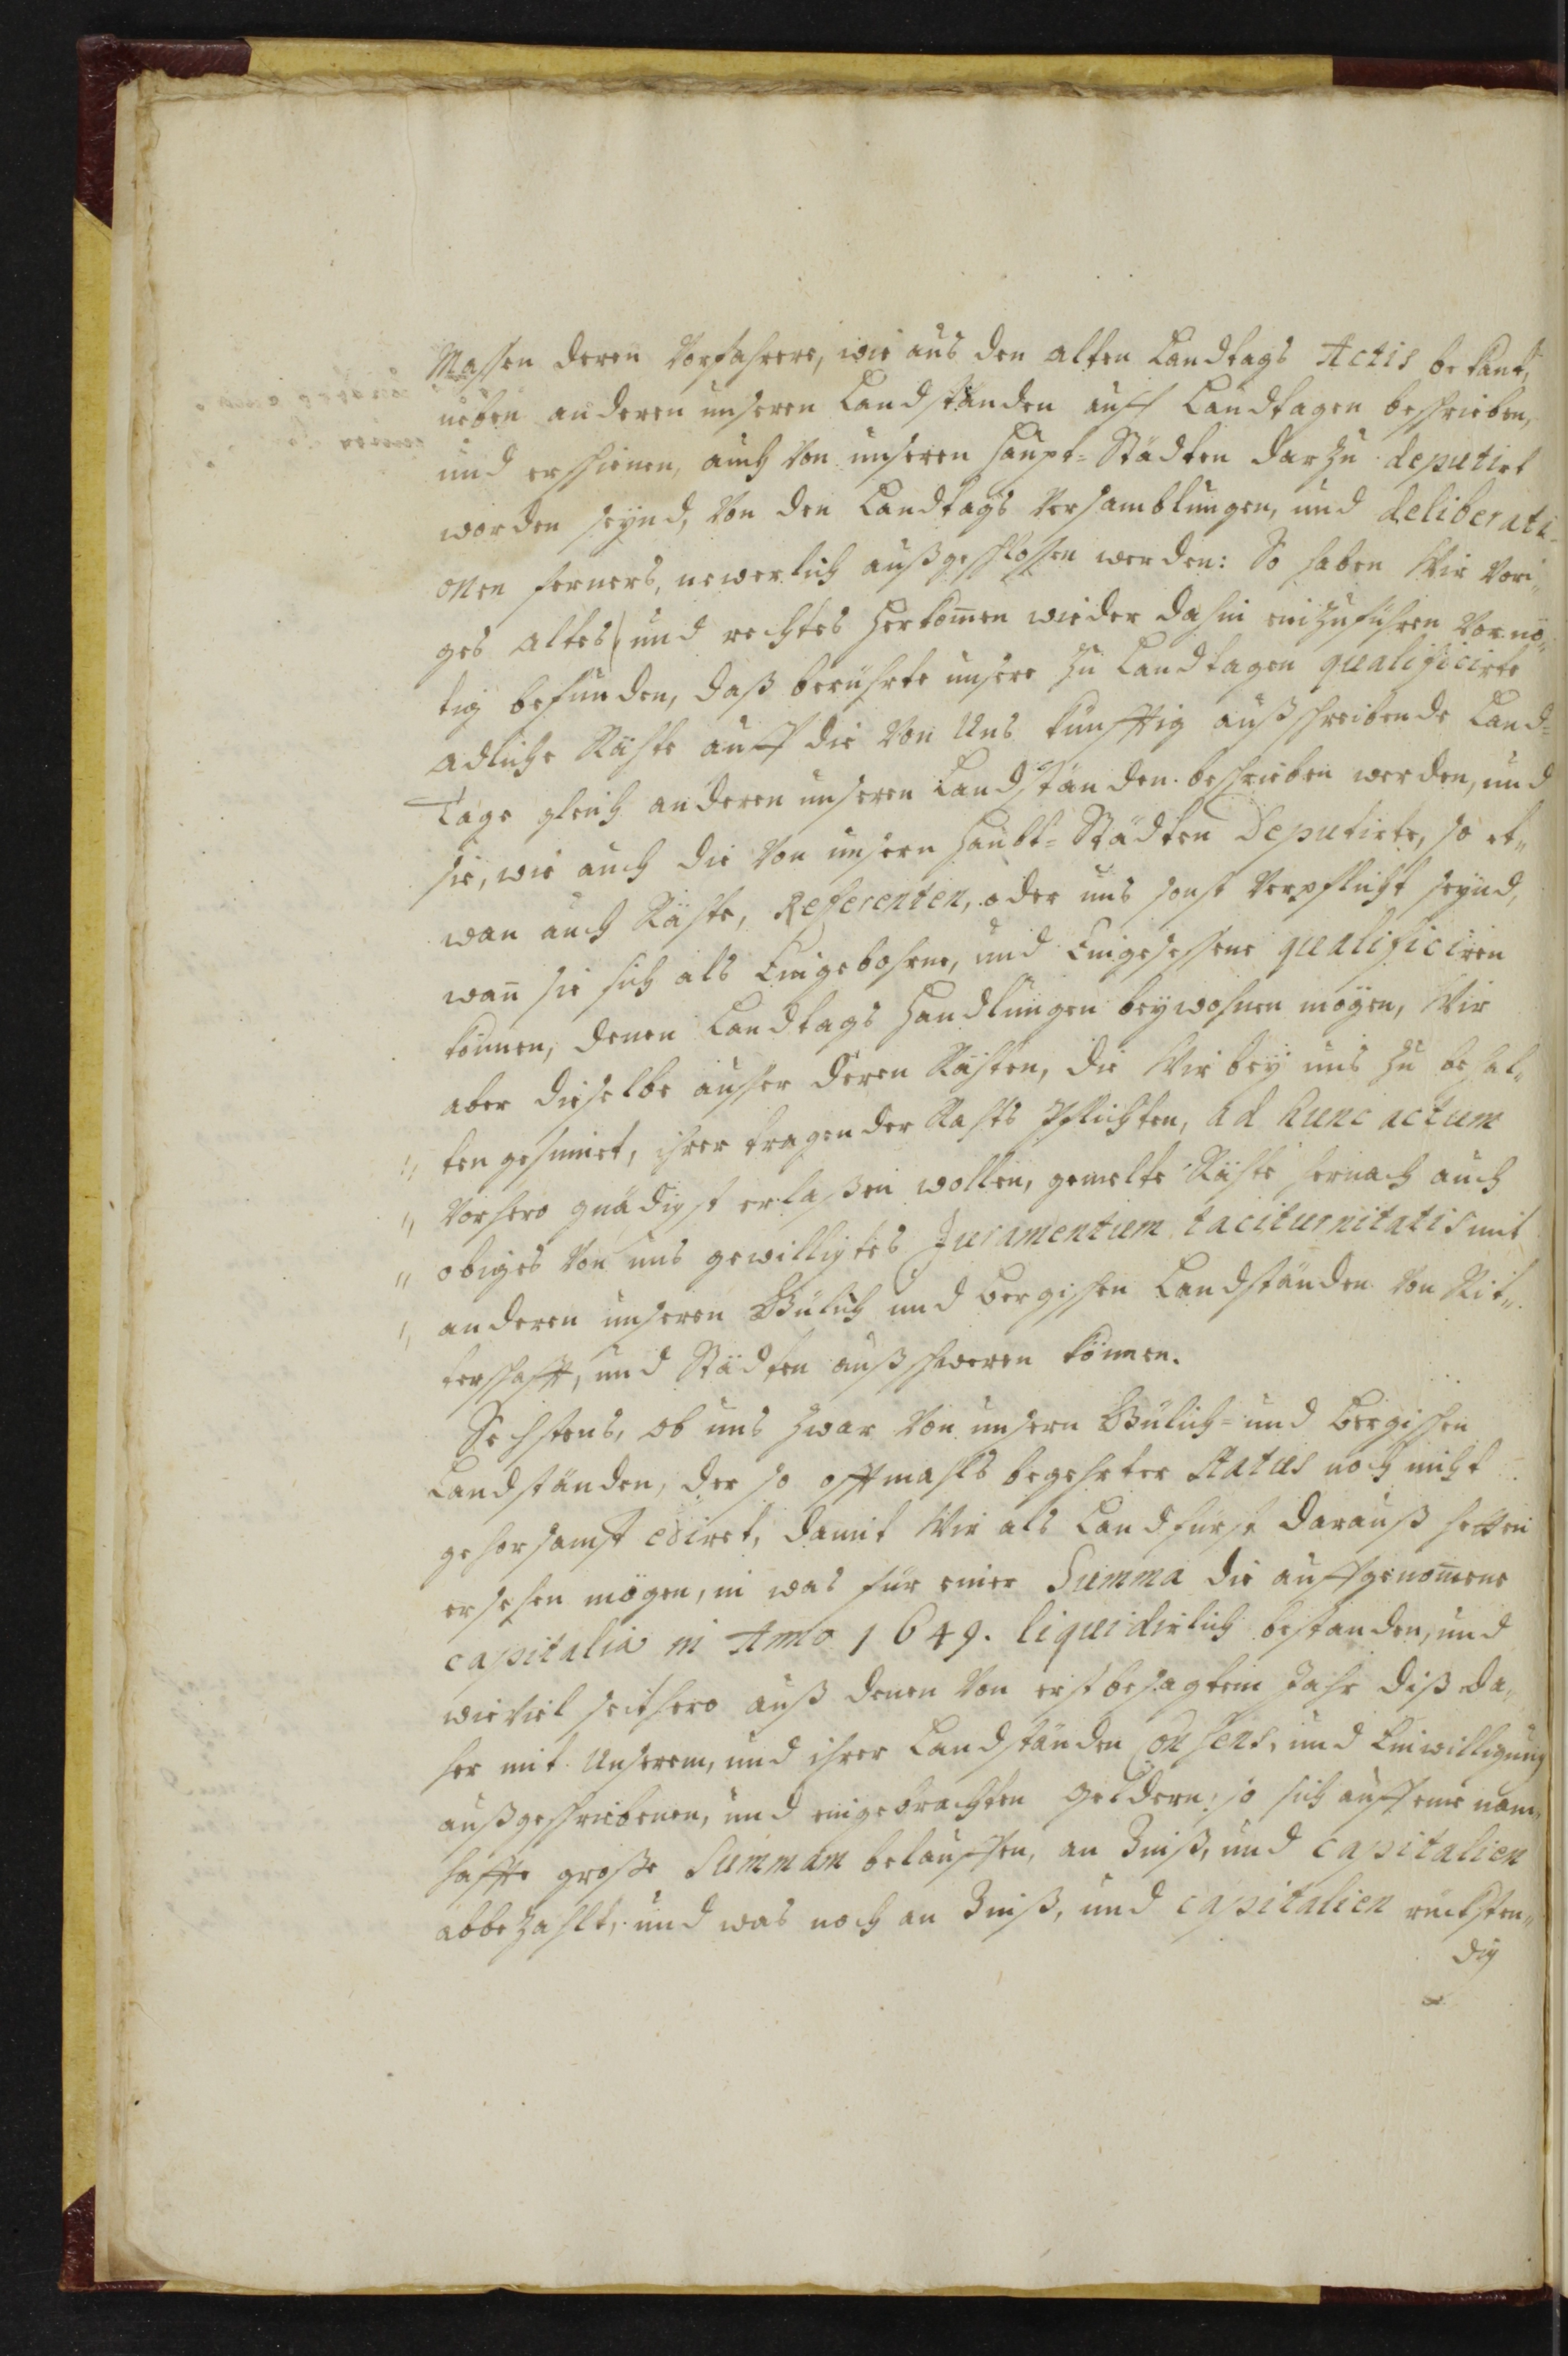 Massen deren Vorfahrere, wie aus den alten Landtags Actis bekant,
neben anderen unseren Landständen auff Landtagen beschrieben,
und erschienen, auch von unseren Haupt-Städten darzu deputirt
worden seynd, von den Landtags Versamblungen, und deliberati-
onen ferners, newerlich außgeschlossen werden: So haben Wir vori„
ges altes und rechtes Herkom̅en wieder dahin einzuführen vor nö„
tig befunden, daß berührte unsere zu Landtagen qualificirte
adliche Räthe auff die von Uns künfftig außschreibende Land-
Tage gleich anderen unseren Landständen beschrieben werden, und
sie, wie auch die von unsern Haubt-Städten Deputirte, so et„
wan auch Räthe, Referenten, oder uns sonst verpflicht seynd,
wan̅ sie sich als Eingebohrne, und Eingesessene qualificiren
können, denen Landtags Handlungen beywohnen mögen, Wir
aber dieselbe ausser deren Räthen, die Wir bey uns zu behal„
„ ten gesinnet, ihrer tragender Raths Pflichten, ad hunc actum
„ vorhero gnädigst erlaßen wollen, gemelte Räthe hernach auch
„ obiges von uns gewilligtes Juramentum taciturnitatis mit
„ anderen unseren Gülich und Bergischen Landständen von Rit„
terschafft, und Städten außschweren können.
Sechstens, ob uns zwar von unsern Gülich- und Bergischen
Landständen, der so offtmahls begehrter Status noch nicht
gehorsamst ediret, damit Wir als Landfürst darauß hetten
ersehen mögen, in was für einer Summa die auffgenom̅ene
capitalia in Anno 1649. liquidirlich bestanden, und
wieviel seithero auß denen von erstbesagtem Jahr diß da„
her mit Unserem, und ihrer Landständen Consens, und Einwilligung
außgeschriebenen, und eingebrachten Geldern, so sich auff eine nam„
haffte große Summam belauffen, an Zinß, und capitalien
abbezahlt, und was noch an Zinß, und capitalien rückstän„
dig